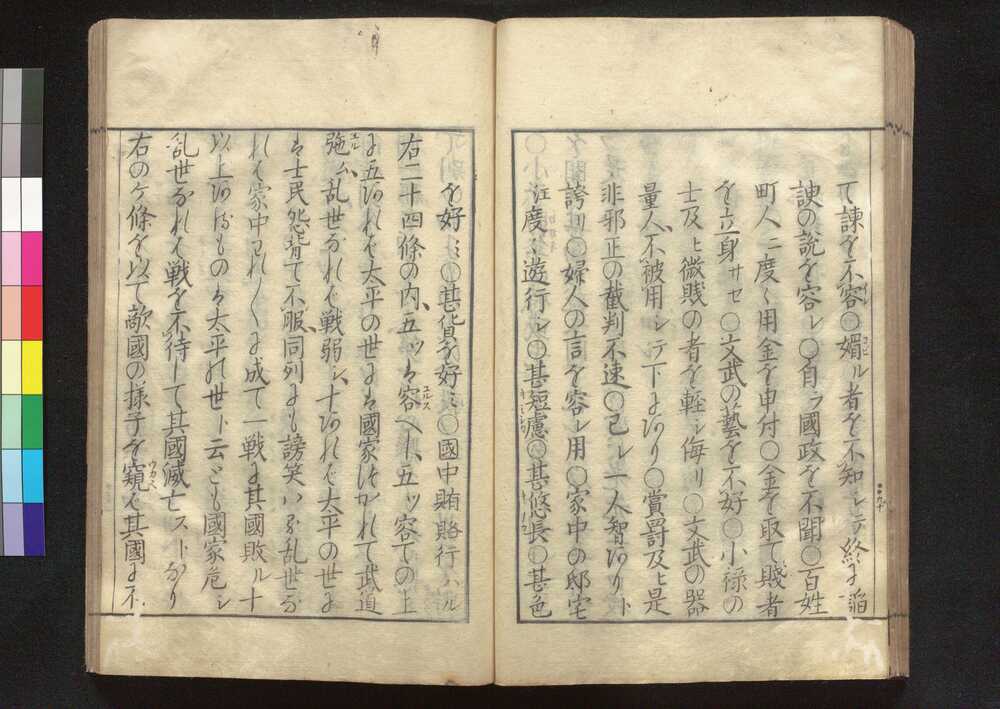 て諫を不容〇媚ル者を不知シテ終に諂
諛の説を容レ〇自ラ國政を不聞〇百姓
町人ニ度〻用金を申付〇金を取て賤者
を立身サセ〇文武の藝を不好〇小禄の
士及ヒ微賤の者を軽シ侮リ〇文武の器
量人不被用シテ下にあり〇賞罰及ヒ是
非邪正の裁判不速〇己レ一人智ありト
誇リ〇婦人の言を容レ用〇家中の邸宅
江度〻遊行シ〇甚短慮〇甚悠長〇甚色
を好ミ〇甚貨を好ミ〇國中賄賂行ハル
右二十四條の内五ツハ容ヘし五ツ容ての上
に五あれは太平の世にハ國家法かれて武道
弛ム乱世なれは戦弱シ十あれは太平の世に
ハ士民怨背て不服同列にも謗笑ハる乱世な
れは家中われ〳〵に成て一戦に其國敗ル十
以上あるものハ太平の世ト云とも國家危シ
乱世なれは戦を不待して其國滅亡ストなり
右のケ條を以て敵國の様子を窺ヘ其國に不